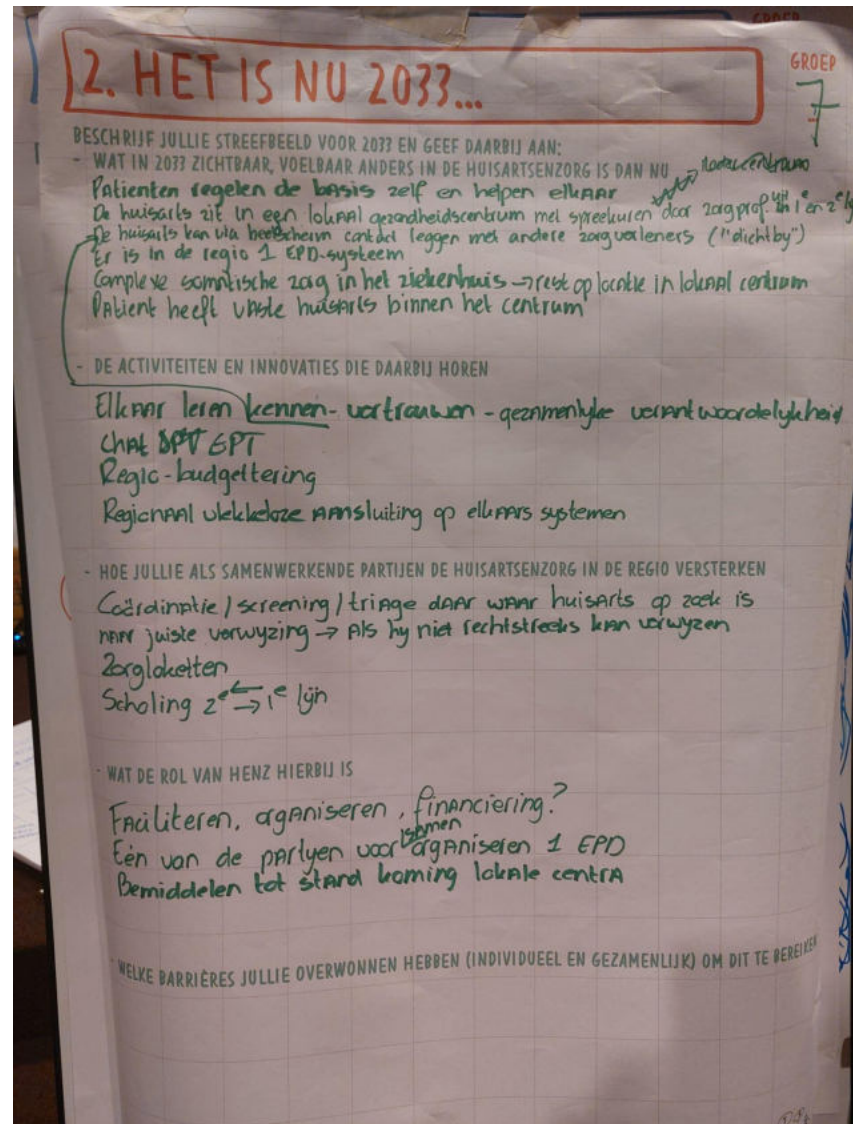 GROEP
2. HET IS NU 2033...
GROEP
7
BESCHRIJF JULLIE STREEFBEELD VOOR 2033 EN GEEF DAARBIJ AAN:
- WAT IN 2033 ZICHTBAAR, VOELBAAR ANDERS IN DE HUISARTSENZORG IS DAN NU
Patienten regelen de basis zelf en helpen elkaar
De huisarts zit in een lokaal gezondheidscentrum met spreekuren door zorgprof uit 1e en 2e
De huisarts kan via beeldscherm contact leggen met andere zorgverleners ("dichtby")
Er is in de regio 1 EPD-systeem
Complexe somatische zorg in het ziekenhuis → rest op locatie in lokaal centrum
Patient heeft vaste huisarts binnen het centrum
- DE ACTIVITEITEN EN INNOVATIES DIE DAARBIJ HOREN
Elkaar leren kennen - vertrouwen - gezamenlyke verantwoordelykheid
Chat GPT
Regio-budgettering
Regionaal vlekkeloze aansluiting op elkaars systemen
- HOE JULLIE ALS SAMENWERKENDE PARTIJEN DE HUISARTSENZORG IN DE REGIO VERSTERKEN
Coördinatie / screening / triage daar waar huisarts op zoek is
naar juiste verwyzing → Als hy niet rechtstreeks kan verwyzen
Zorgloketten
Scholing 2e ⇆ 1e lijn
- WAT DE ROL VAN HENZ HIERBIJ IS
Faciliteren, organiseren, financiering?
Eén van de partyen voor samen organiseren 1 EPD
Bemiddelen tot stand koming lokale centra
- WELKE BARRIÈRES JULLIE OVERWONNEN HEBBEN (INDIVIDUEEL EN GEZAMENLIJK) OM DIT TE BEREIKEN